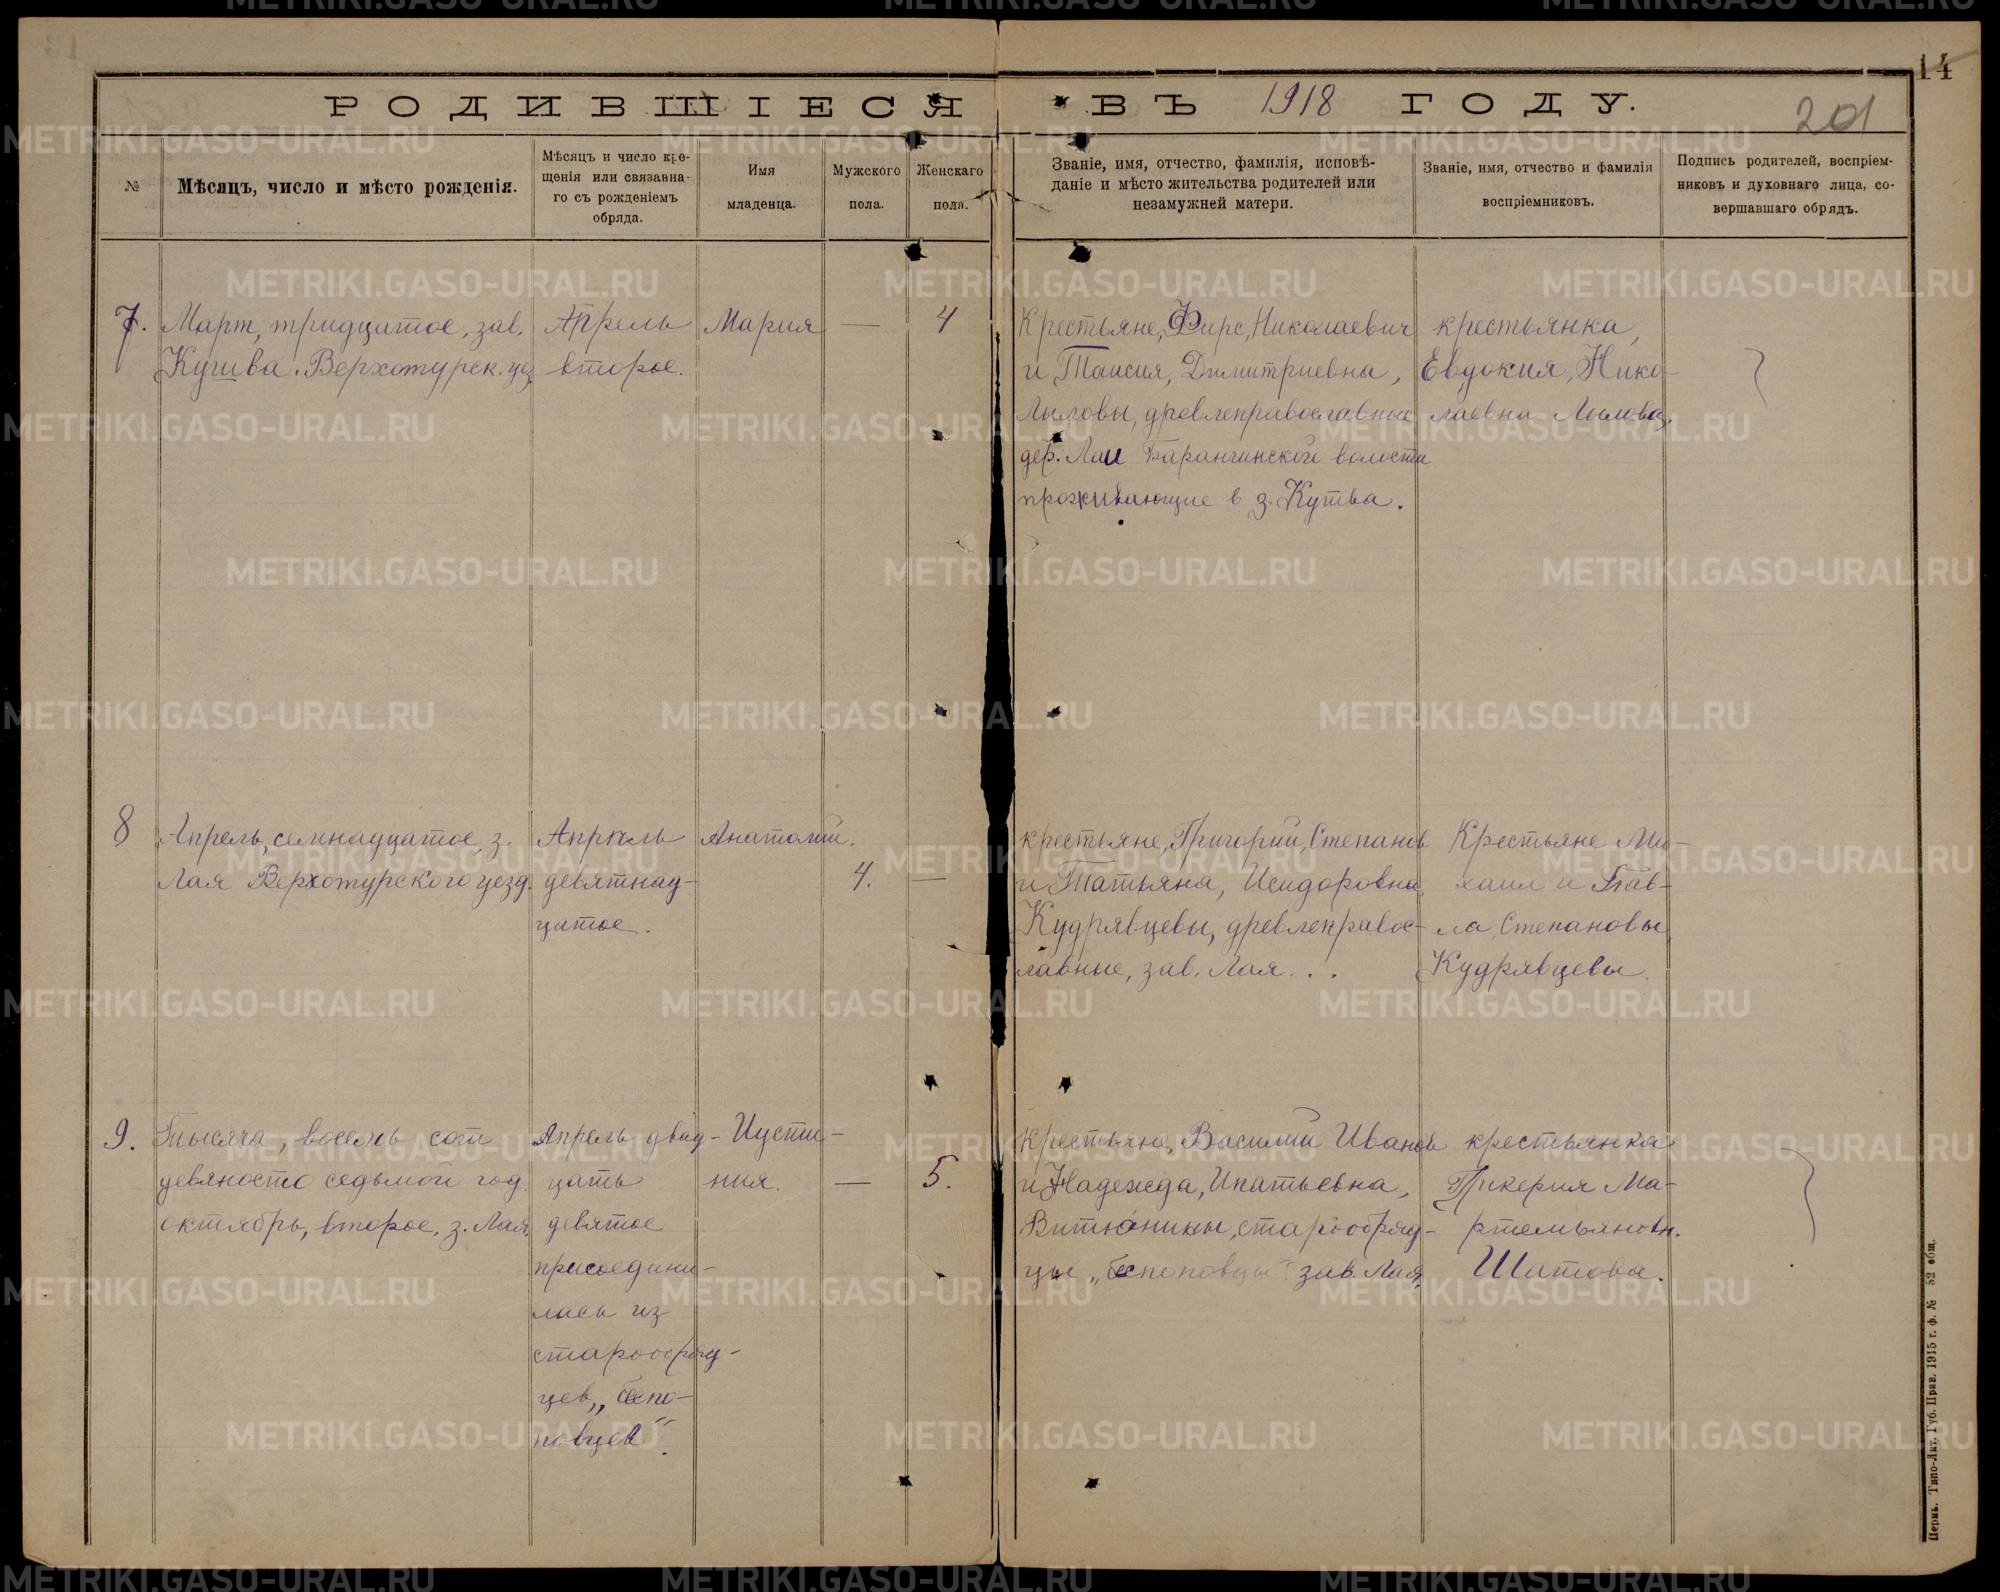 14
РОДИВШІЕСЯ ВЪ 1918 ГОДУ.
201
№
Мѣсяцъ, число и мѣсто рожденія.
Мѣсяцъ и число кре-
щенія или связанна-
го съ рожденіемъ
обряда.
Имя
младенца.
Мужского
пола.
Женскаго
пола.
Званіе, имя, отчество, фамилія, исповѣ-
даніе и мѣсто жительства родителей или
незамужней матери.
Званіе, имя, отчество и фамилія
воспріемниковъ.
Подпись родителей, воспріем-
никовъ и духовнаго лица, со-
вершавшаго обрядъ.
7.
Март, тридцатое, зав.
Кушва. Верхотурск. уз.
Апрель
второе.
Мария
—
4
Крестьяне, Фирс, Николаевич
и Таисия, Димитриевна,
Лыловы, древлеправославные
дер. Лаи Баранчинской волости
проживающие в з. Кушва.
крестьянка,
Евдокия, Нико-
лаевна Лылова.
8
Апрель, семнадцатое, з.
Лая Верхотурского уезд.
Апрель
девятнад-
цатое.
Анатолий.
4.
—
крестьяне, Григорий, Степанов
и Татьяна, Исидоровна
Кудрявцевы, древлеправос-
лавные, зав. Лая...
Крестьяне Ми-
хаил и Пав-
ла, Степановы
Кудрявцевы.
9.
Тысяча, восемь сот
девяносто седьмой год.
октябрь, второе, з. Лая.
Апрель двад-
цать
девятое
присоедини-
лась из
старообряд-
цев, „беспо-
повцев".
Иусти-
ния.
—
5.
Крестьяне, Василий Иванов
и Надежда, Ипатьевна,
Витюнины, старообряд-
цы „беспоповцы" зав. Лая.
крестьянка
Гликерия Ма-
ртемьяновн.
Шатова.
Пермь. Типо-Лит. Губ. Прав. 1915 г. ф. № 52 общ.
METRIKI.GASO-URAL.RU